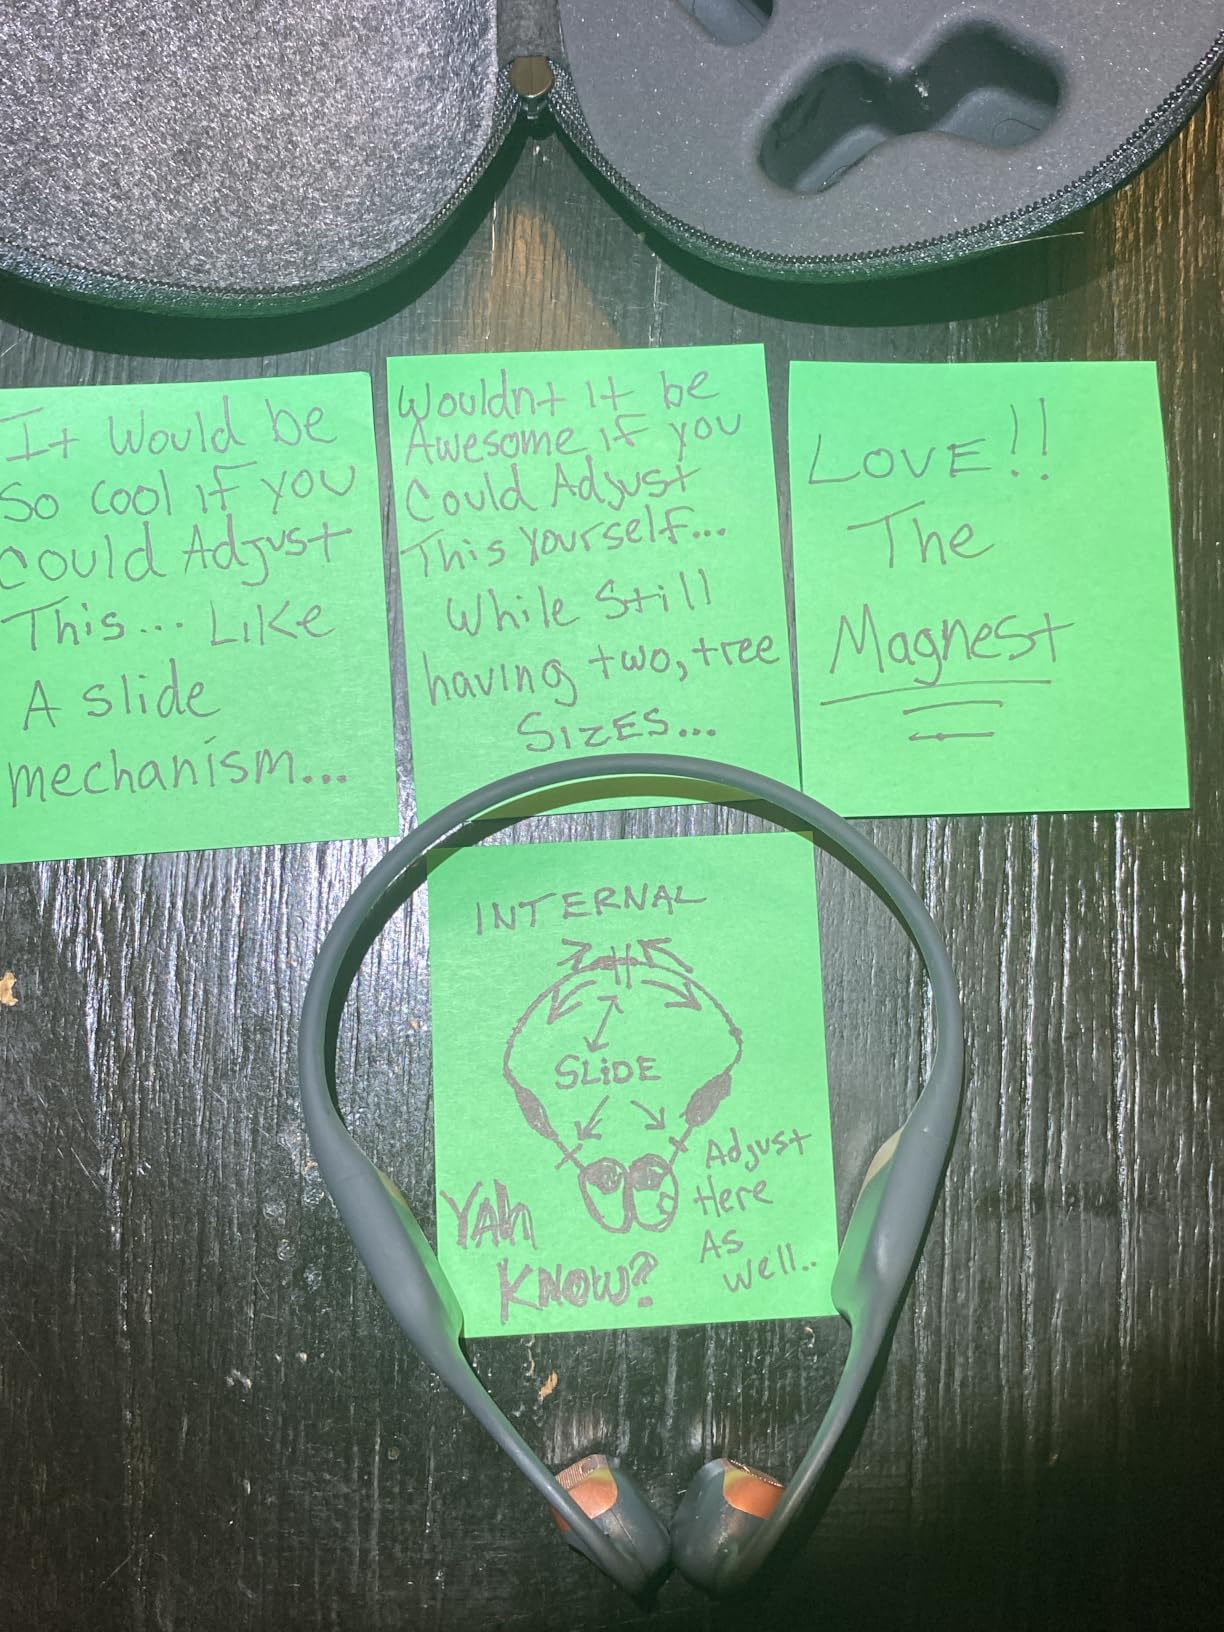 It Would be
So cool if you
Could Adjust
This... Like
A slide
mechanism...
Wouldnt it be
Awesome if you
Could Adjust
This Yourself...
While Still
having two, tree
SIZES...
LOVE!!
The
Magnest
INTERNAL
SLiDE
Adjust
Here
As
well..
YAh
KNOW?